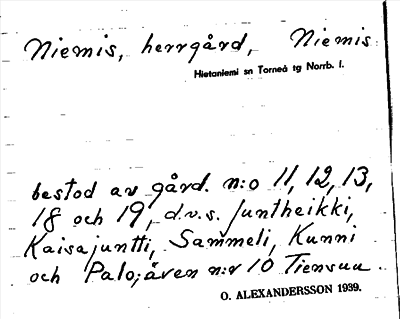 Niemis, herrgård, Niemis.
Hietaniemi sn Torneå tg Norrb. l.
bestod av gård. n:o 11, 12, 13,
18 och 19, d.v.s. Juntheikki,
Kaisajuntti, Sammeli, Kunni
och Palo; även n:r 10 Tiensuu.
O. ALEXANDERSSON 1939.